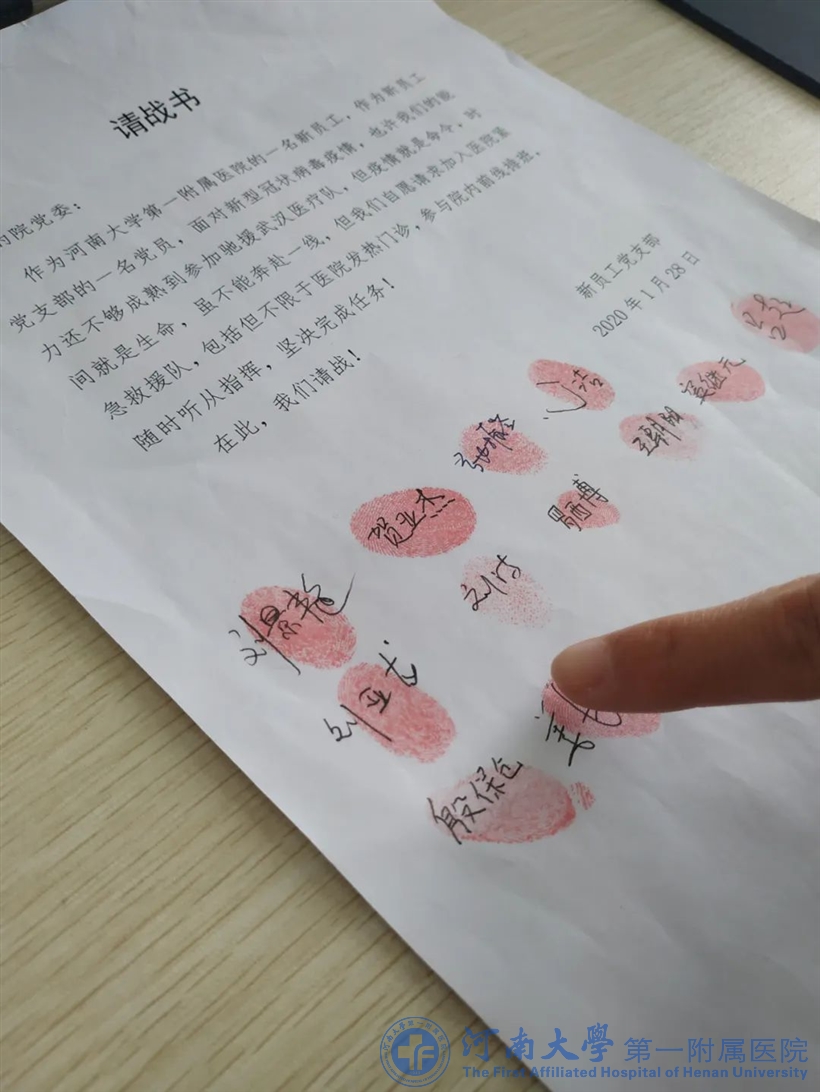 请战书
院党委：
作为河南大学第一附属医院的一名新员工，作为新员工
党支部的一名党员，面对新型冠状病毒疫情，也许我们的能
力还不够成熟到参加驰援武汉医疗队，但疫情就是命令，时
间就是生命，虽不能奔赴一线，但我们自愿请求加入医院紧
急救援队，包括但不限于医院发热门诊，参与院内前线值班，
随时听从指挥，坚决完成任务！
在此，我们请战！
新员工党支部
2020年1月28日
贺亚杰
刘景龙
刘亚龙
殷保仓
河南大学 第一附属医院
The First Affiliated Hospital of Henan University